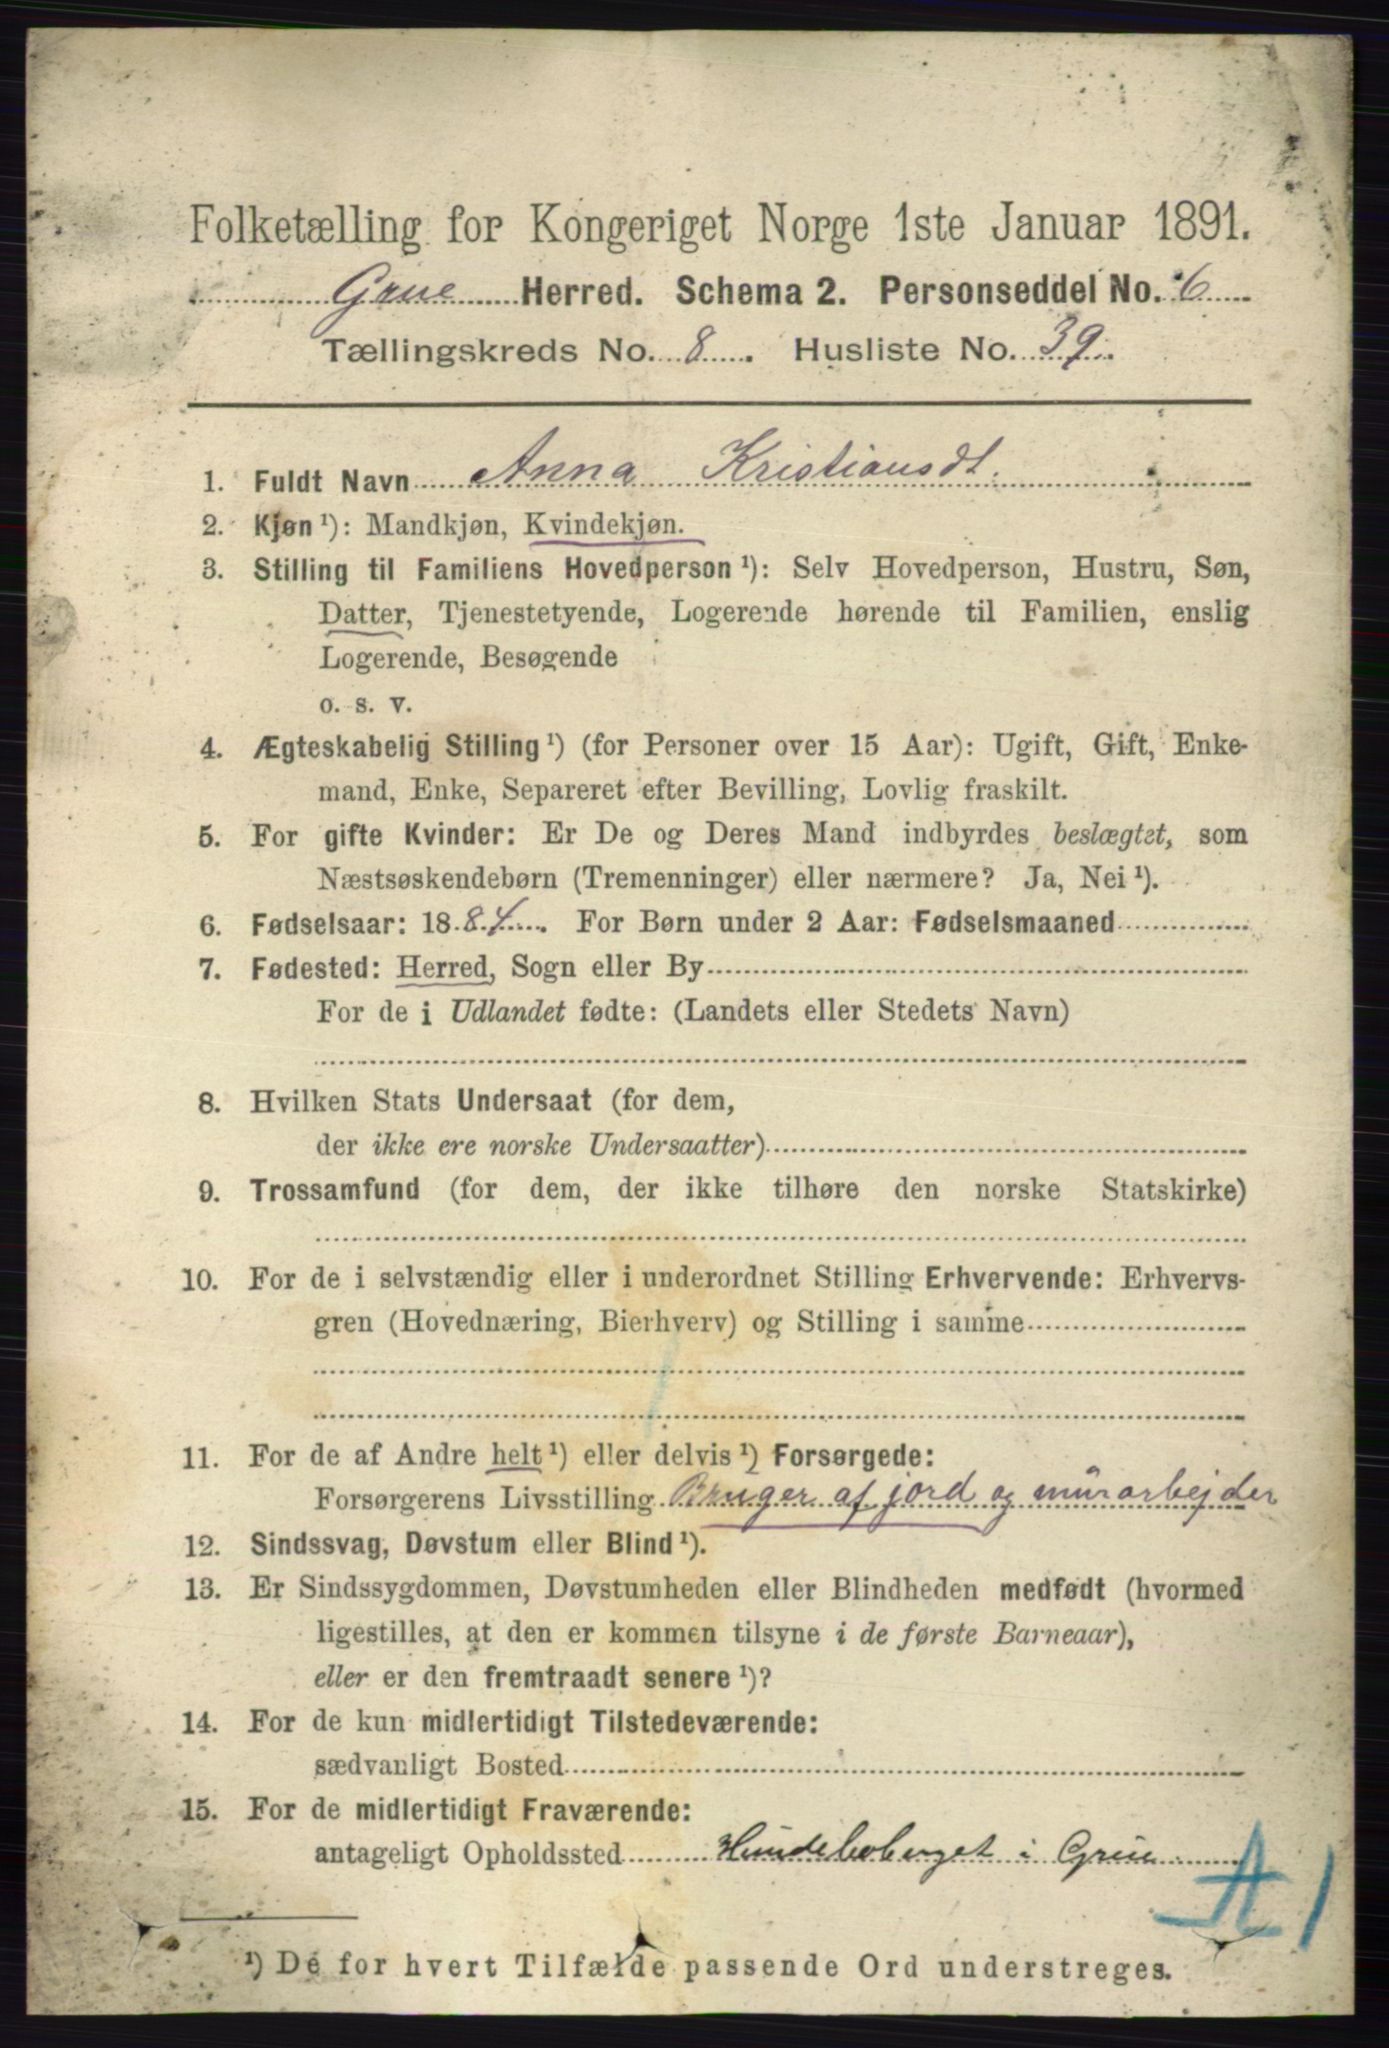 Folketælling for Kongeriget Norge 1ste Januar 1891.
Grue Herred. Schema 2. Personseddel No. 6
Tællingskreds No. 8. Husliste No. 39.
1. Fuldt Navn Anna Kristiansdt.
2. Kjøn ¹): Mandkjøn, Kvindekjøn.
3. Stilling til Familiens Hovedperson ¹): Selv Hovedperson, Hustru, Søn,
Datter, Tjenestetyende, Logerende hørende til Familien, enslig
Logerende, Besøgende
o. s. v.
4. Ægteskabelig Stilling ¹) (for Personer over 15 Aar): Ugift, Gift, Enke-
mand, Enke, Separeret efter Bevilling, Lovlig fraskilt.
5. For gifte Kvinder: Er De og Deres Mand indbyrdes beslægtet, som
Næstsøskendebørn (Tremenninger) eller nærmere? Ja, Nei ¹).
6. Fødselsaar: 1884. For Børn under 2 Aar: Fødselsmaaned
7. Fødested: Herred, Sogn eller By
For de i Udlandet fødte: (Landets eller Stedets Navn)
8. Hvilken Stats Undersaat (for dem,
der ikke ere norske Undersaatter)
9. Trossamfund (for dem, der ikke tilhøre den norske Statskirke)
10. For de i selvstændig eller i underordnet Stilling Erhvervende: Erhvervs-
gren (Hovednæring, Bierhverv) og Stilling i samme
11. For de af Andre helt ¹) eller delvis ¹) Forsørgede:
Forsørgerens Livsstilling Bruger af jord og murarbejder
12. Sindssvag, Døvstum eller Blind ¹).
13. Er Sindssygdommen, Døvstumheden eller Blindheden medfødt (hvormed
ligestilles, at den er kommen tilsyne i de første Barneaar),
eller er den fremtraadt senere ¹)?
14. For de kun midlertidigt Tilstedeværende:
sædvanligt Bosted
15. For de midlertidigt Fraværende:
antageligt Opholdssted i Grue
A 1
¹) De for hvert Tilfælde passende Ord understreges.